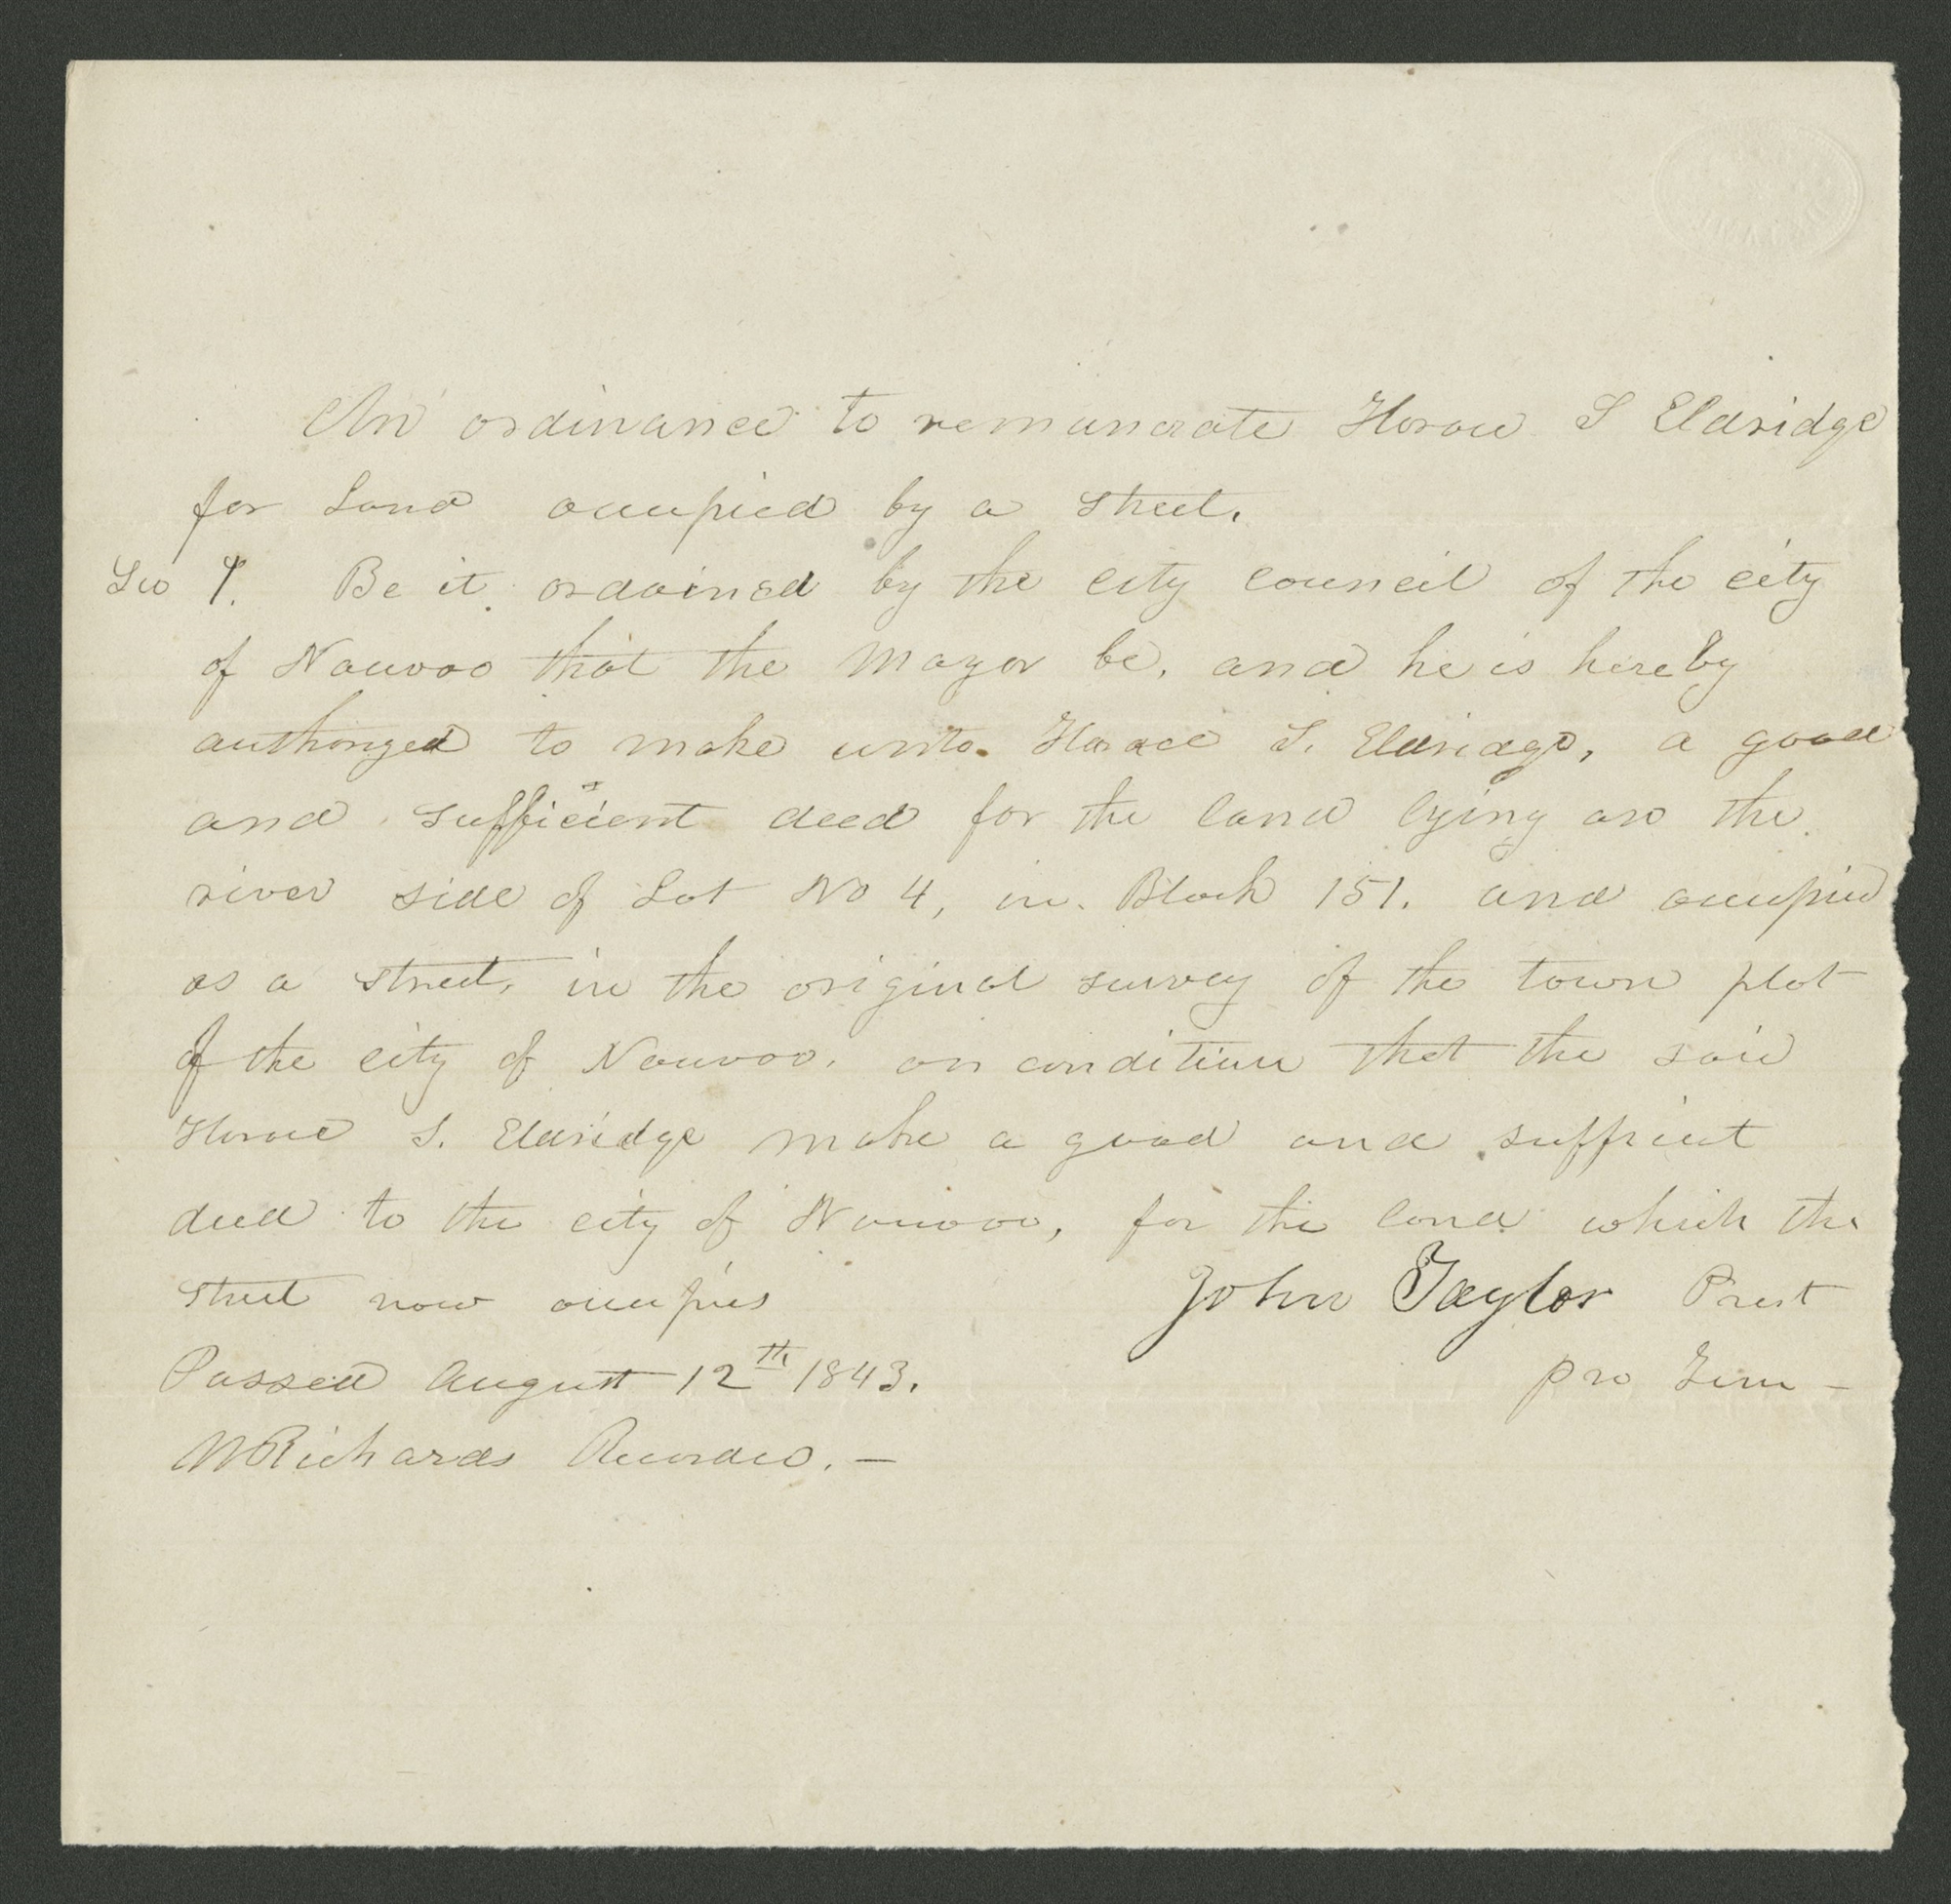 An ordinance to remunerate Horace S Eldridge
for Land occupied by a street.
Sec 1. Be it ordained by the city council of the city
of Nauvoo that the Mayor be, and he is hereby
authorized to make unto Horace S. Eldridge, a good
and sufficient deed for the land lying on the
river side of Lot No 4, in Block 151. and occupied
as a street, in the original survey of the town plot
of the city of Nauvoo, on condition that the said
Horace S. Eldridge make a good and sufficient
deed to the city of Nauvoo, for the land which the
street now occupies John Taylor Prest
Passed August 12th 1843. pro Tem –
W Richards Recorder. –